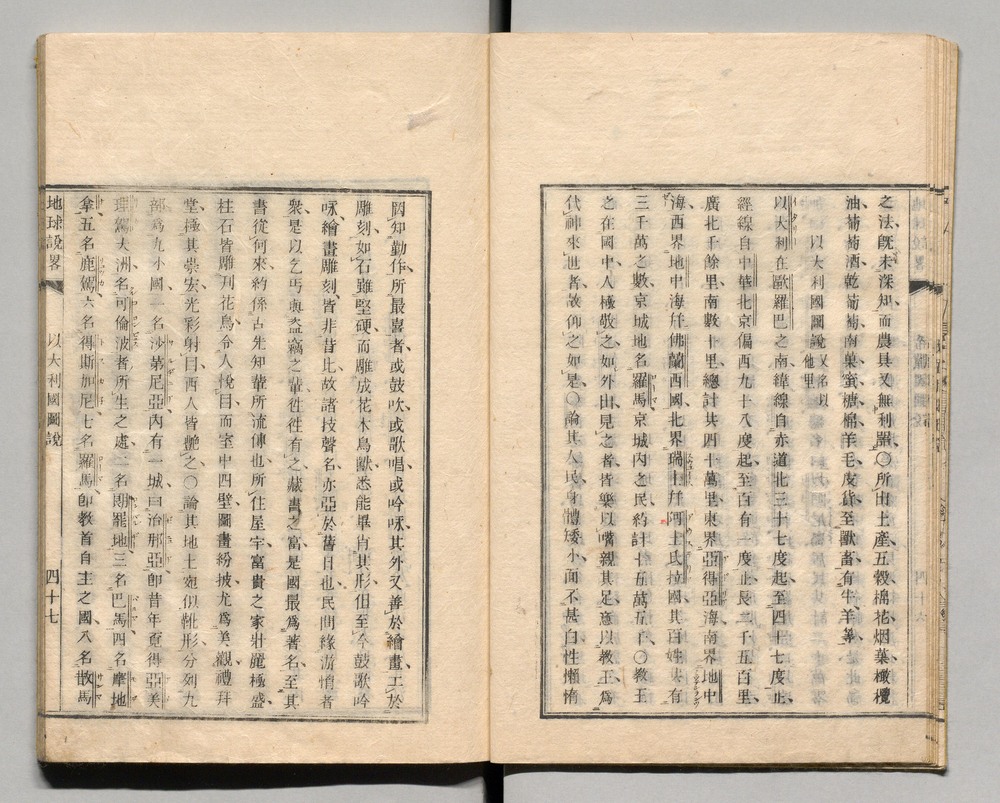 之法既未深知而農具又無利器〇所出土產五穀棉花烟葉橄欖
油葡萄酒乾葡萄南菓蜜糖棉羊毛皮貨至獸畜有牛羊等
以大利國圖說又名以他里
以大利在歐羅巴之南緯線自赤道北三十七度起至四十七度止
經線自中華北京偏西九十八度起至百有一度止長二千五百里
廣北千餘里南數十里總計共四十萬里東界亞得亞海南界地中
海西界地中海幷佛蘭西國北界瑞士幷阿士氏拉國其百姓共有
三千萬之數京城地名羅馬京城內之民約計十五萬五百〇教王
之在國中人極敬之如外出見之者皆樂以嘴親其足意以教王爲
代神來世者故仰之如是〇論其人民身體矮小面不甚白性懶惰
罔知勤作所最喜者或鼓吹或歌唱或吟咏其外又善於繪畫工於
雕刻如石雖堅硬而雕成花木鳥獸悉能畢肖其形但至今鼓歌吟
咏繪畫雕刻皆非昔比故諸技聲名亦亞於舊日也民間緣游惰者
衆是以乞丐與盜竊之輩徃徃有之藏書之富是國最爲著名至其
書從何來約係古先知輩所流傳也所住屋宇富貴之家壯麗極盛
柱石皆雕刋花鳥令人悅目而室中四壁圖畫紛披尤爲美觀禮拜
堂極其崇宏光彩射目西人皆艷之〇論其地土宛似靴形分列九
部爲九小國一名沙第尼亞內有一城曰治那亞卽昔年覓得亞美
理駕大洲名可倫波者所生之處二名剛罷地三名巴馬四名摩地
拿五名鹿駕六名得斯加尼七名羅馬卽教首自主之國八名散馬
地球說畧
以大利國圖說
四十七